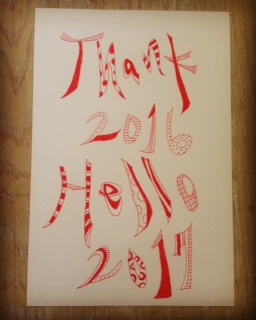 Thank
2016
Hello
2017